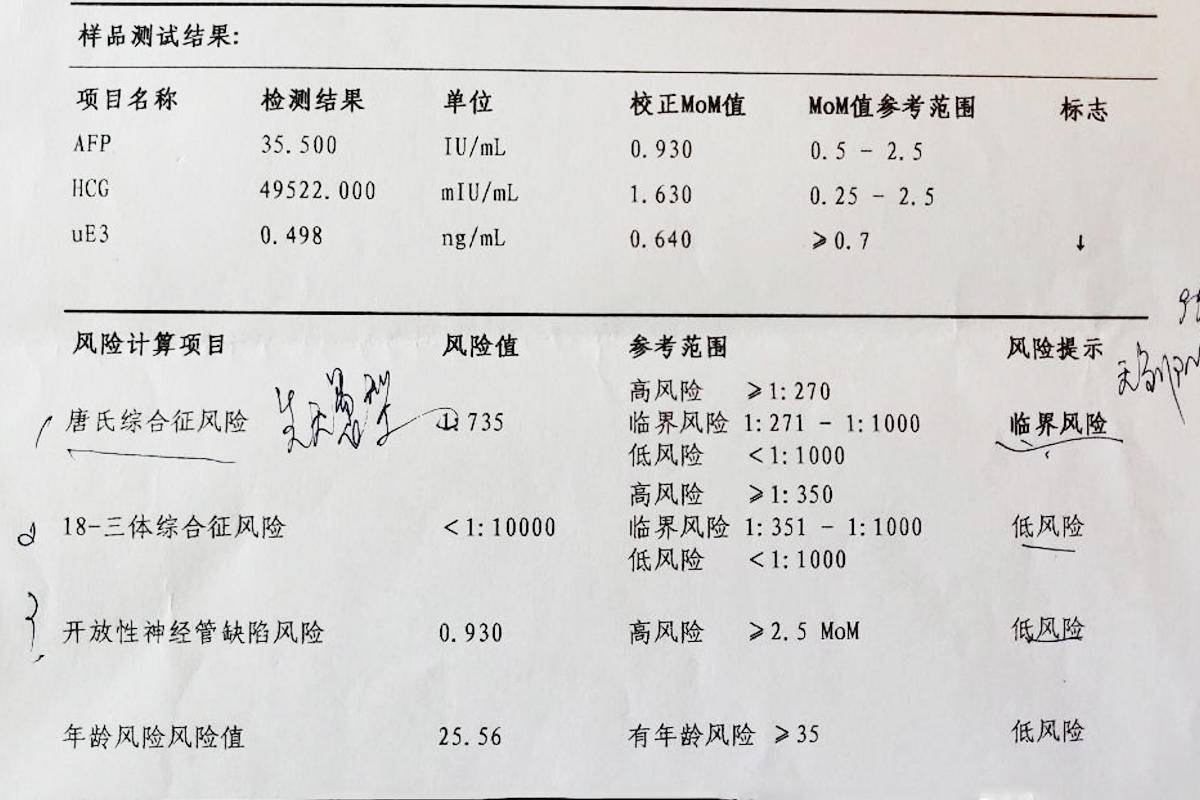 样品测试结果:
项目名称 检测结果 单位 校正MoM值 MoM值参考范围 标志
AFP 35.500 IU/mL 0.930 0.5 - 2.5
HCG 49522.000 mIU/mL 1.630 0.25 - 2.5
uE3 0.498 ng/mL 0.640 ≥0.7 ↓
风险计算项目 风险值 参考范围 风险提示
高风险 ≥1:270
唐氏综合征风险 1:735 临界风险 1:271 - 1:1000 临界风险
低风险 <1:1000
高风险 ≥1:350
18-三体综合征风险 <1:10000 临界风险 1:351 - 1:1000 低风险
低风险 <1:1000
开放性神经管缺陷风险 0.930 高风险 ≥2.5 MoM 低风险
年龄风险风险值 25.56 有年龄风险 ≥35 低风险